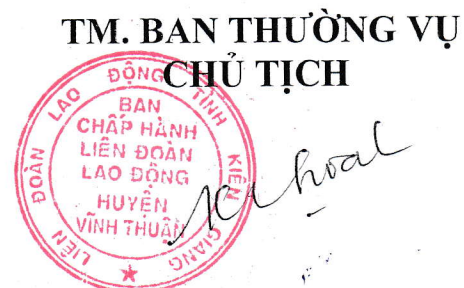 TM. BAN THƯỜNG VỤ
CHỦ TỊCH
LIÊN ĐOÀN LAO ĐỘNG TỈNH KIÊN GIANG
BAN
CHẤP HÀNH
LIÊN ĐOÀN
LAO ĐỘNG
HUYỆN
VĨNH THUẬN